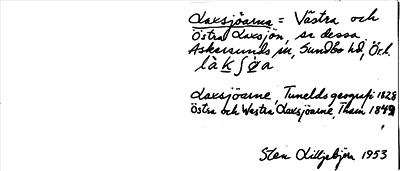 Laxsjöarna = Västra och
Östra Laxsjön, se dessa
Askersunds sn, Sundbo hd, Ör.l.
làkʃø̀a
Laxsjöarne, Tunelds geografi 1828
Östra och Westra Laxsjöarne, Tham 1849
Sten Lilljebjörn 1953